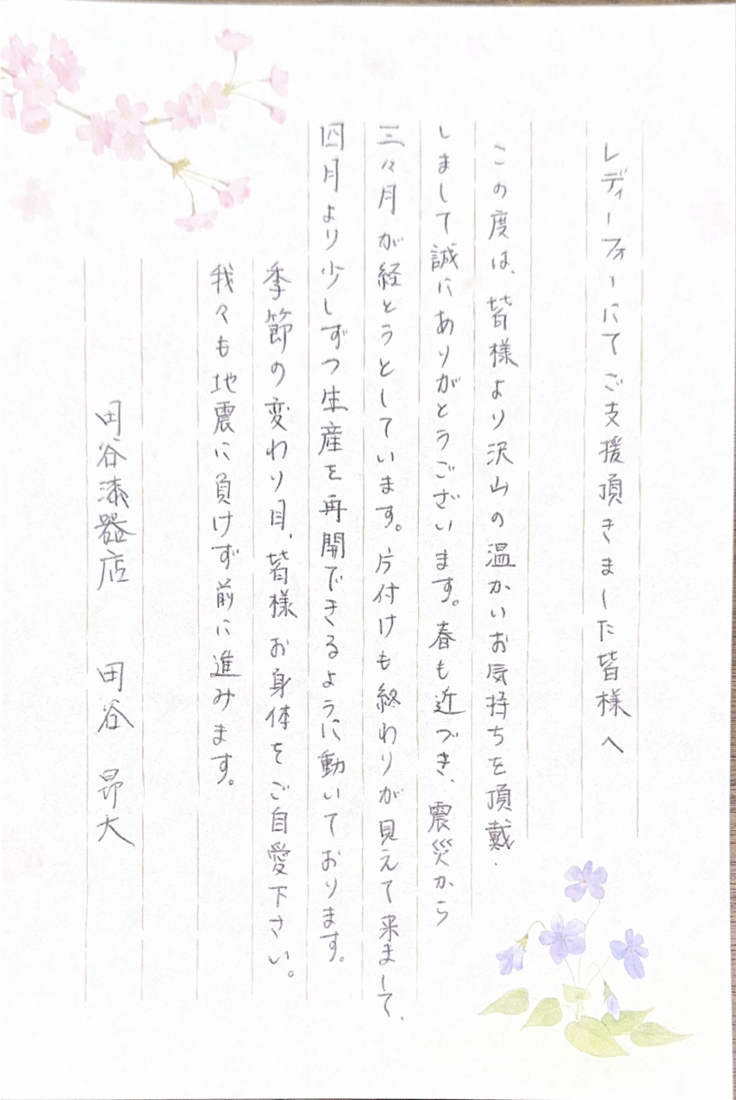 レディーフォーにてご支援頂きました皆様へ
この度は、皆様より沢山の温かいお気持ちを頂戴
しまして誠にありがとうございます。春も近づき、震災から
三々月が経とうとしています。片付けも終わりが見えて来まして、
四月より少しずつ生産を再開できるように動いております。
季節の変わり目、皆様お身体をご自愛下さい。
我々も地震に負けず前に進みます。
田谷漆器店　田谷　昂大